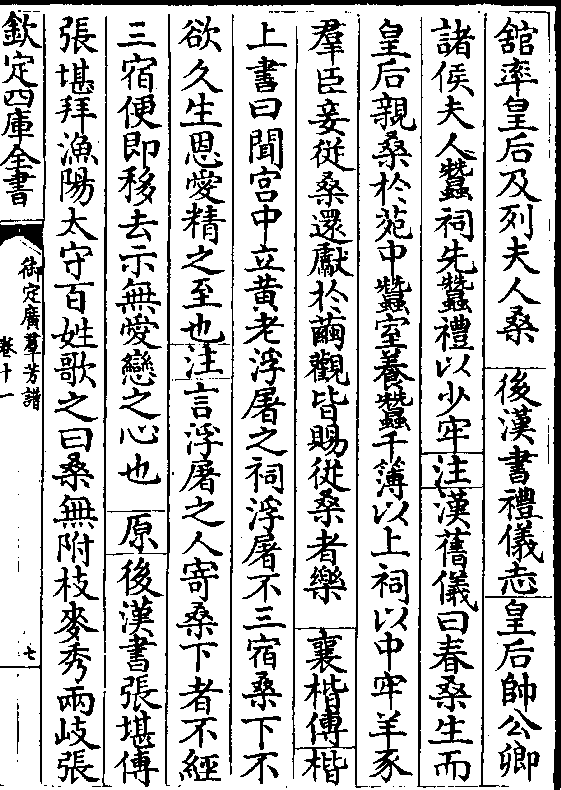 舘率皇后及列夫人桑　後漢書禮儀志皇后帥公卿
諸侯夫人蠶祠先蠶禮以少牢注漢舊儀曰春桑生而
皇后親桑於苑中蠶室養蠶千簿以上祠以中牢羊豕
羣臣妾從桑還獻於繭觀皆賜從桑者樂　襄楷傳楷
上書曰聞宫中立黄老浮屠之祠浮屠不三宿桑下不
欲久生恩愛精之至也注言浮屠之人寄桑下者不經
三宿便即移去示無愛戀之心也　原後漢書張堪傳
張堪拜漁陽太守百姓歌之曰桑無附枝麥秀兩岐張
欽定四庫全書
御定廣羣芳譜
卷十一
七